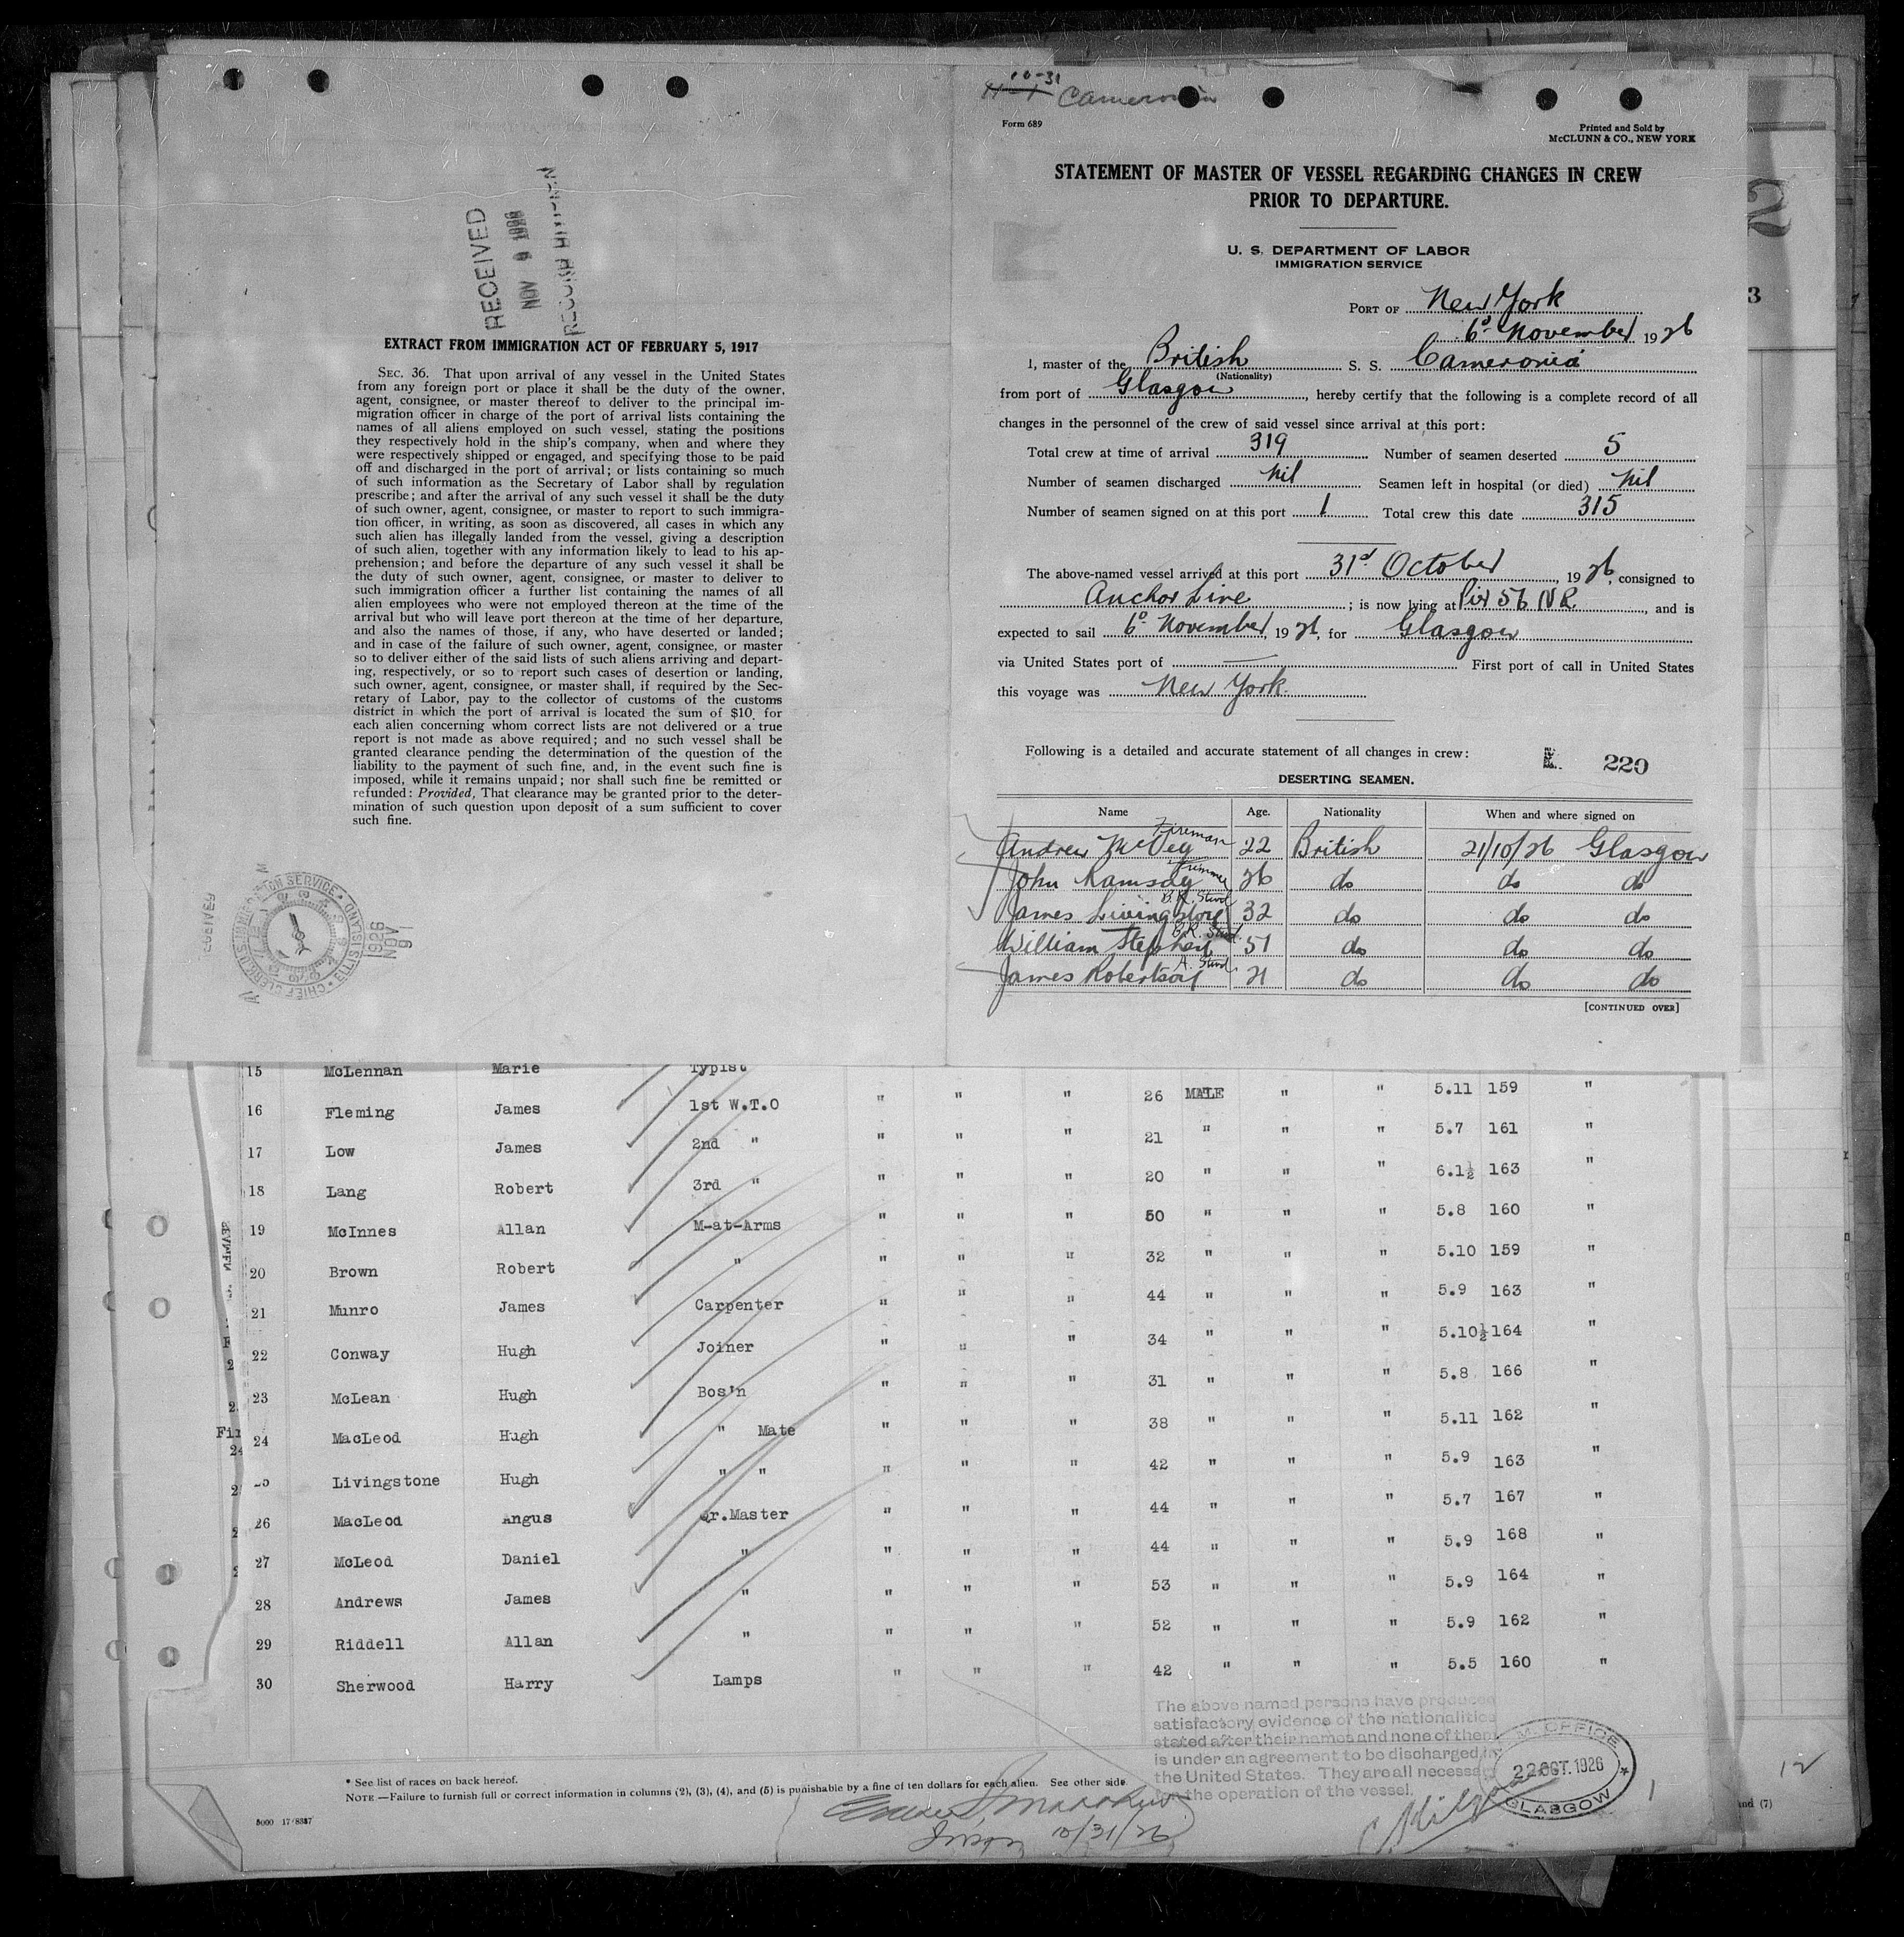 RECEIVED
NOV 9 1926
EXTRACT FROM IMMIGRATION ACT OF FEBRUARY 5, 1917
SEC. 36. That upon arrival of any vessel in the United States
from any foreign port or place it shall be the duty of the owner,
agent, consignee, or master thereof to deliver to the principal im-
migration officer in charge of the port of arrival lists containing the
names of all aliens employed on such vessel, stating the positions
they respectively hold in the ship's company, when and where they
were respectively shipped or engaged, and specifying those to be paid
off and discharged in the port of arrival; or lists containing so much
of such information as the Secretary of Labor shall by regulation
prescribe; and after the arrival of any such vessel it shall be the duty
of such owner, agent, consignee, or master to report to such immigra-
tion officer, in writing, as soon as discovered, all cases in which any
such alien has illegally landed from the vessel, giving a description
of such alien, together with any information likely to lead to his ap-
prehension; and before the departure of any such vessel it shall be
the duty of such owner, agent, consignee, or master to deliver to
such immigration officer a further list containing the names of all
alien employees who were not employed thereon at the time of the
arrival but who will leave port thereon at the time of her departure,
and also the names of those, if any, who have deserted or landed;
and in case of the failure of such owner, agent, consignee, or master
so to deliver either of the said lists of such aliens arriving and depart-
ing, respectively, or so to report such cases of desertion or landing,
such owner, agent, consignee, or master shall, if required by the Sec-
retary of Labor, pay to the collector of customs of the customs
district in which the port of arrival is located the sum of $10 for
each alien concerning whom correct lists are not delivered or a true
report is not made as above required; and no such vessel shall be
granted clearance pending the determination of the question of the
liability to the payment of such fine, and, in the event such fine is
imposed, while it remains unpaid; nor shall such fine be remitted or
refunded: Provided, That clearance may be granted prior to the deter-
mination of such question upon deposit of a sum sufficient to cover
such fine.
1926
NOV
9
10-31
Cameronia
Form 689
Printed and Sold by
McCLUNN & CO., NEW YORK
STATEMENT OF MASTER OF VESSEL REGARDING CHANGES IN CREW
PRIOR TO DEPARTURE.
U. S. DEPARTMENT OF LABOR
IMMIGRATION SERVICE
PORT OF New York
6th November 1926
I, master of the British S. S. Cameronia
(Nationality)
from port of Glasgow, hereby certify that the following is a complete record of all
changes in the personnel of the crew of said vessel since arrival at this port:
Total crew at time of arrival 319 Number of seamen deserted 5
Number of seamen discharged Nil Seamen left in hospital (or died) Nil
Number of seamen signed on at this port 1 Total crew this date 315
The above-named vessel arrived at this port 31st October, 1926, consigned to
Anchor Line; is now lying at Pier 56 N.R., and is
expected to sail 6th November 1926, for Glasgow
via United States port of First port of call in United States
this voyage was New York.
Following is a detailed and accurate statement of all changes in crew:
220
DESERTING SEAMEN.
Name Age. Nationality When and where signed on
Andrew McVey Fireman 22 British 21/10/26 Glasgow
John Ramsay Trimmer 26 do do do
James Livingstone B.R. Stwd 32 do do do
William Stephen B.R. Stwd. 51 do do do
James Robertson A. Stwd. 21 do do do
[CONTINUED OVER]
15 McLennan Marie Typist
16 Fleming James 1st W.T.O " " " 26 MALE " " 5.11 159 "
17 Low James 2nd " " " " 21 " " " 5.7 161 "
18 Lang Robert 3rd " " " " 20 " " " 6.1½ 163 "
19 McInnes Allan M-at-Arms " " " 50 " " " 5.8 160 "
20 Brown Robert " " " " 32 " " " 5.10 159 "
21 Munro James Carpenter " " " 44 " " " 5.9 163 "
22 Conway Hugh Joiner " " " 34 " " " 5.10½ 164 "
23 McLean Hugh Bos'n " " " 31 " " " 5.8 166 "
24 MacLeod Hugh " Mate " " " 38 " " " 5.11 162 "
Livingstone Hugh " " " " " 42 " " " 5.9 163 "
26 MacLeod Angus Qr.Master " " " 44 " " " 5.7 167 "
27 McLeod Daniel " " " " 44 " " " 5.9 168 "
28 Andrews James " " " " 53 " " " 5.9 164 "
29 Riddell Allan " " " " 52 " " " 5.9 162 "
30 Sherwood Harry Lamps " " " 42 " " " 5.5 160 "
The above named persons have produced
satisfactory evidence of the nationalities
stated after their names and none of them
is under an agreement to be discharged in
the United States. They are all necessary
for the operation of the vessel.
M. OFFICE
22 OCT. 1926
GLASGOW
* See list of races on back hereof.
NOTE —Failure to furnish full or correct information in columns (2), (3), (4), and (5) is punishable by a fine of ten dollars for each alien. See other side
10/31/26
12
and (7)